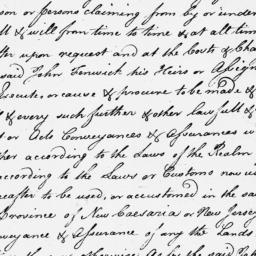 son or Persons claiming from by or under
ll & will from time to time & at all time
fter upon request and at the Costs & Cha
said John Fenwick his Heirs or Assign
Execute, or cause & procure to be made &
& every such further & other lawfull &
t or Acts Conveyances & Assurances
her according to the Laws of the Realm
according to the Laws or Customs now u
eafter to be used, or accustomed in the sa
Province of New Caesaria or New Jersey
veyance & Assurance of any the Lands
otherwise As by the said